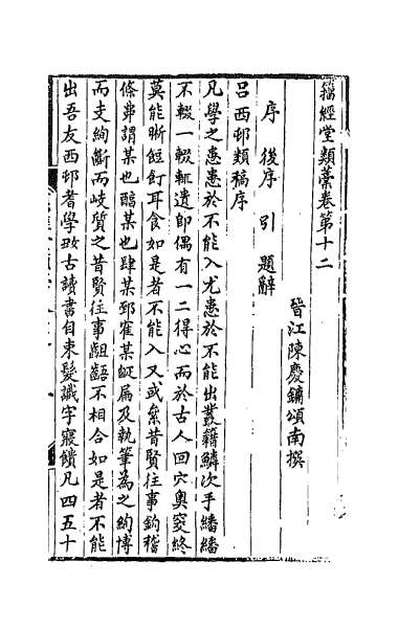 籀經堂類藁卷第十二
序 後序 引 題辭
晉江陳慶鏞頌南撰
呂西邨類稿序
凡學之患患於不能入尤患於不能出叢籍鱗次手繙繙
不輟一輟輒遺卽偶有一二得心而於古人回穴奧窔終
莫能晰飣餖耳食如是者不能入又或絫昔賢往事鉤稽
條弗謂某也 某也肆某郅寉某 扁及執筆為之約博
而支絢斷而岐質之昔賢往事齟齬不相合如是者不能
出吾友西邨耆學攷古讀書自束髮識字寢饋凡四五十